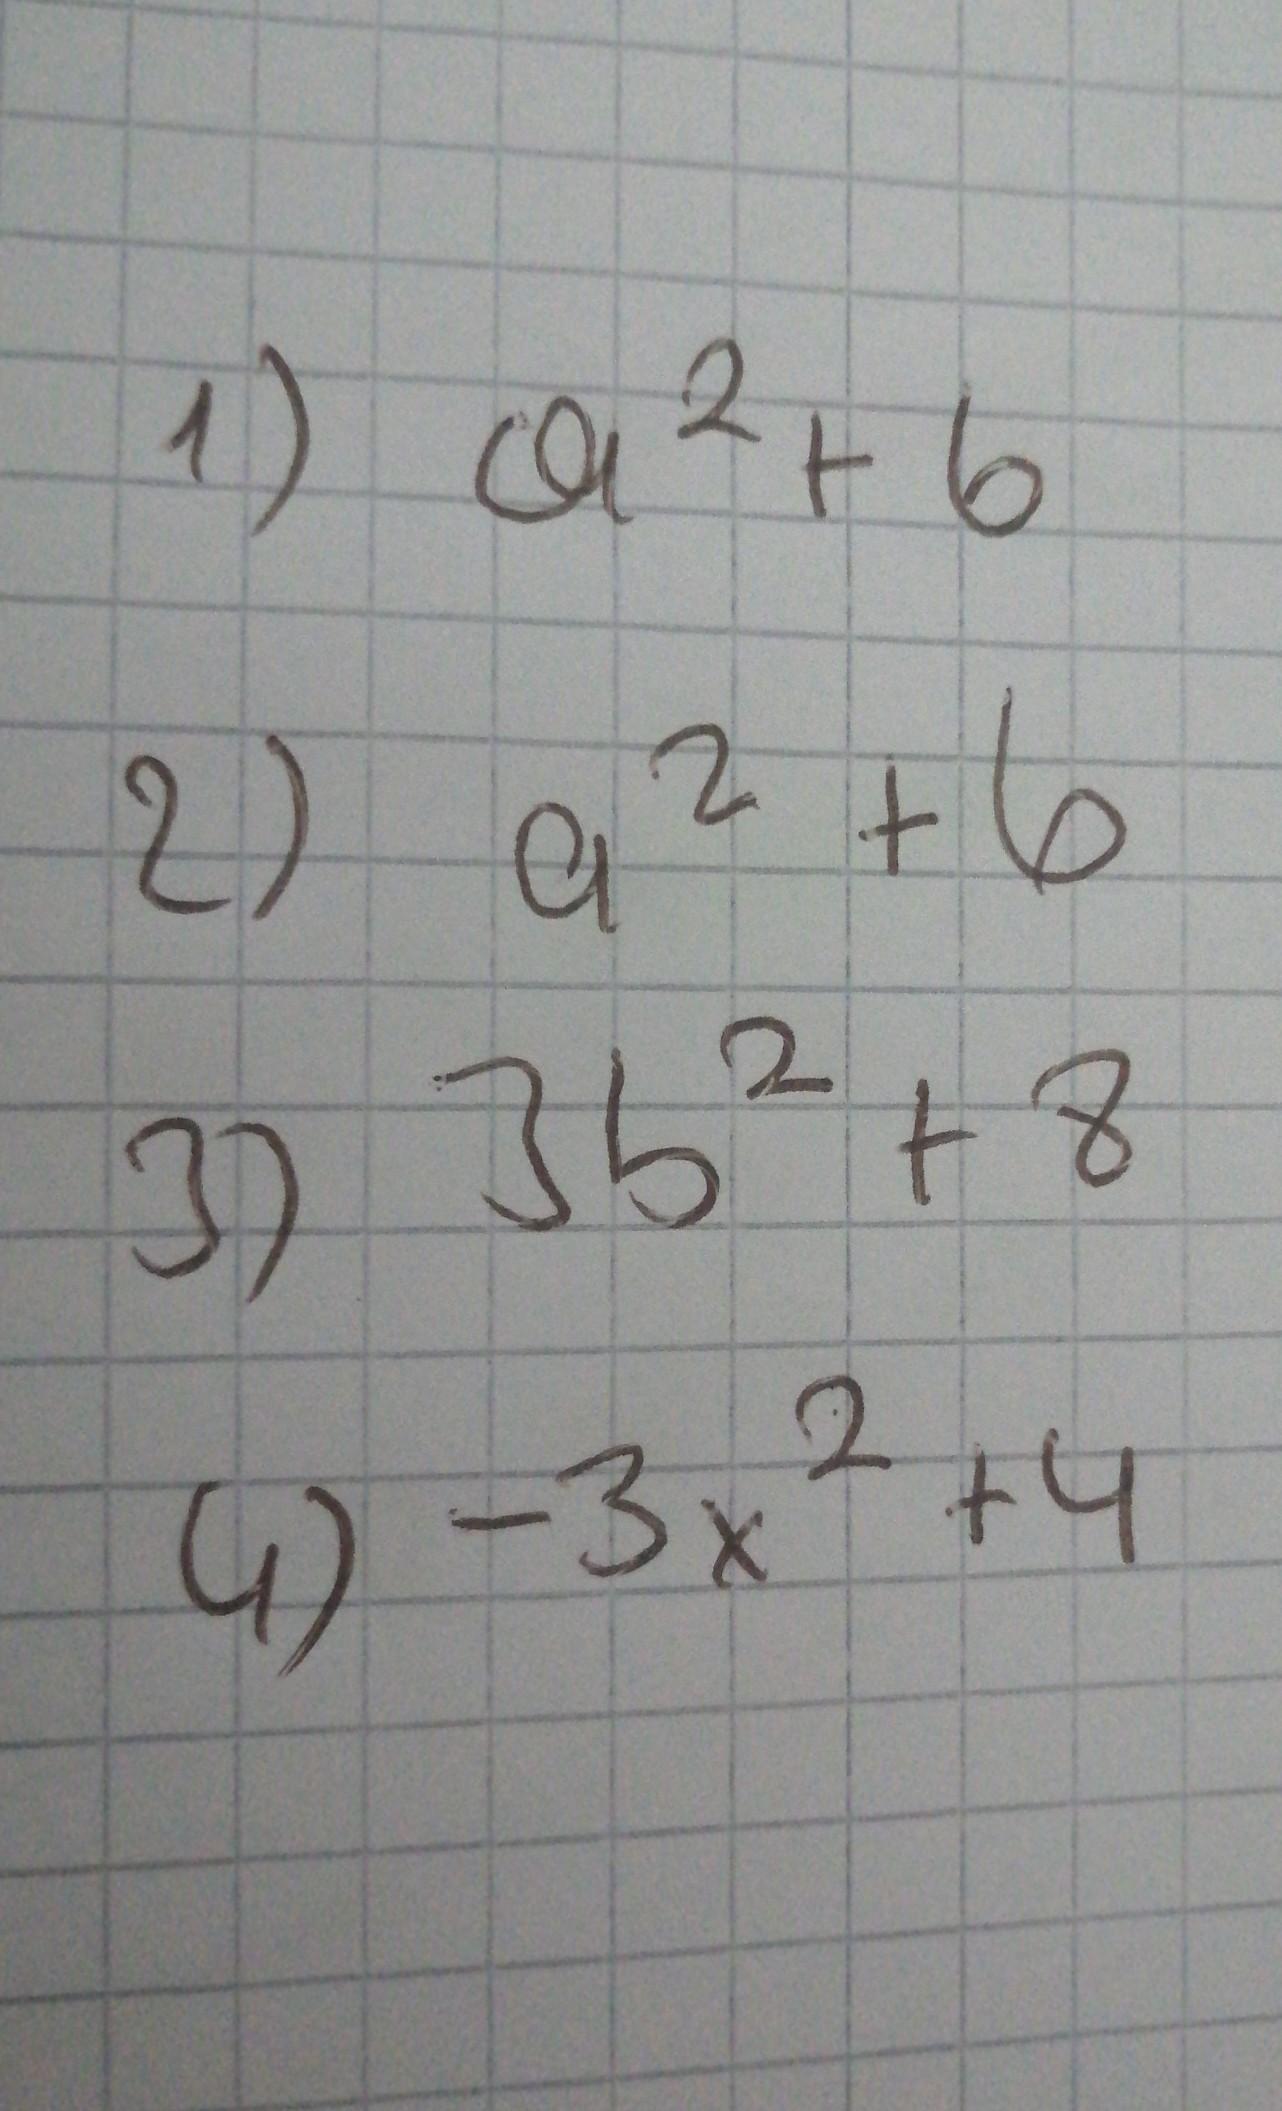 1) a² + 6
2) a² + 6
3) 3b² + 8
4) -3x² + 4